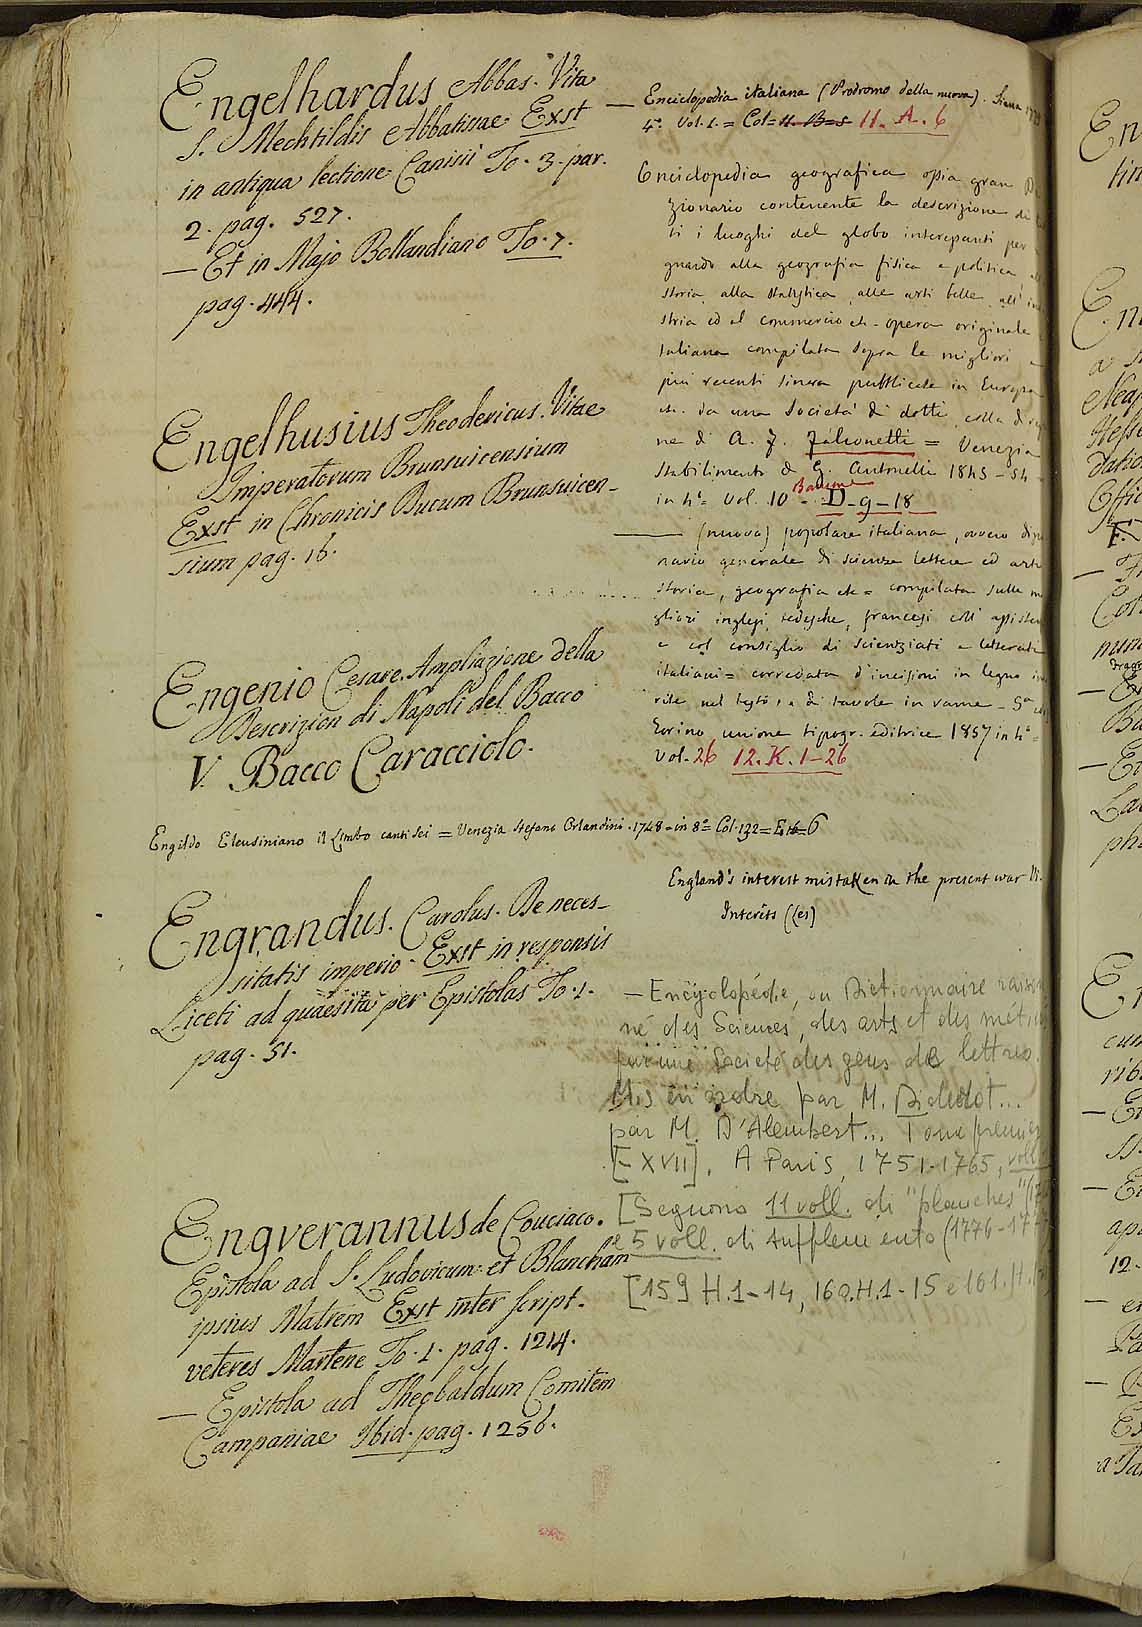 Engelhardus Abbas. Vita
S. Mechtildis Abbatissae Exst
in antiqua lectione Canisii To. 3. par.
2. pag. 527.
— Et in Majo Bollandiano To. 7.
pag. 444.
Engelhusius Theodericus. Vitae
Imperatorum Brunsuicensium
Exst in Chronicis Ducum Brunsuicen-
sium pag. 16.
Engenio Cesare. Ampliazione della
Descrizion di Napoli del Bacco
V. Bacco Caracciolo.
Engildo Eleusiniano il Limbo canti sei = Venezia Stefano Orlandini. 1748 = in 8° = Col. 132 = E. 16 = 6
Engrandus. Carolus. De neces-
sitatis imperio. Exst in responsis
Liceti ad quaesita per Epistolas To. 1.
pag. 51.
Engverannus de Couciaco.
Epistola ad S. Ludovicum et Blancham
ipsius Matrem Exst inter script.
veteres Martene To. 1. pag. 1214.
— Epistola ad Theobaldum Comitem
Campaniae Ibid. pag. 1256.
— Enciclopedia italiana (Prodromo dalla nuova). Siena
4°. Vol. 1. = Col = 11. B = 5 11. A. 6
Enciclopedia geografica ossia gran
zionario contenente la descrizione di
ti i luoghi del globo interessanti per
guardo alla geografia fisica e politica
storia, alla statistica, alle arti belle, all'
stria ed al commercio ec. opera originale
taliana compilata sopra le migliori
più recenti sinora pubblicate in Europa
ec. da una Società di dotti, colla
ne di A. F. Falconetti = Venezia
stabilimento di G. Antonelli 1845-54
in 4° = Vol. 10 = D-9-18
——— (nuova) popolare italiana, ovvero
nario generale di scienze lettere ed arti
storia, geografia ec = compilata sulle
gliori inglesi, tedesche, francesi coll'
e col consiglio di scienziati e letterati
italiani = corredata d'incisioni in legno
rite nel testo, e di tavole in rame - 5ª
Torino unione tipogr. editrice 1857 in 4° =
Vol. 26 12. K. 1-26
England's interest mistaken in the present war V.
Interêts (les)
— Encyclopédie, ou Dictionnaire
né des Sciences, des arts et des
par une Societé des gens de lettres.
Mis en ordre par M. Diderot...
par M. D'Alembert... Tome premier
[- XVII]. A Paris, 1751-1765, voll.
[Seguono 11 voll. di "planches"
e 5 voll. di supplemento (1776-
[159 H.1-14, 160.H.1-15 e 161.H.